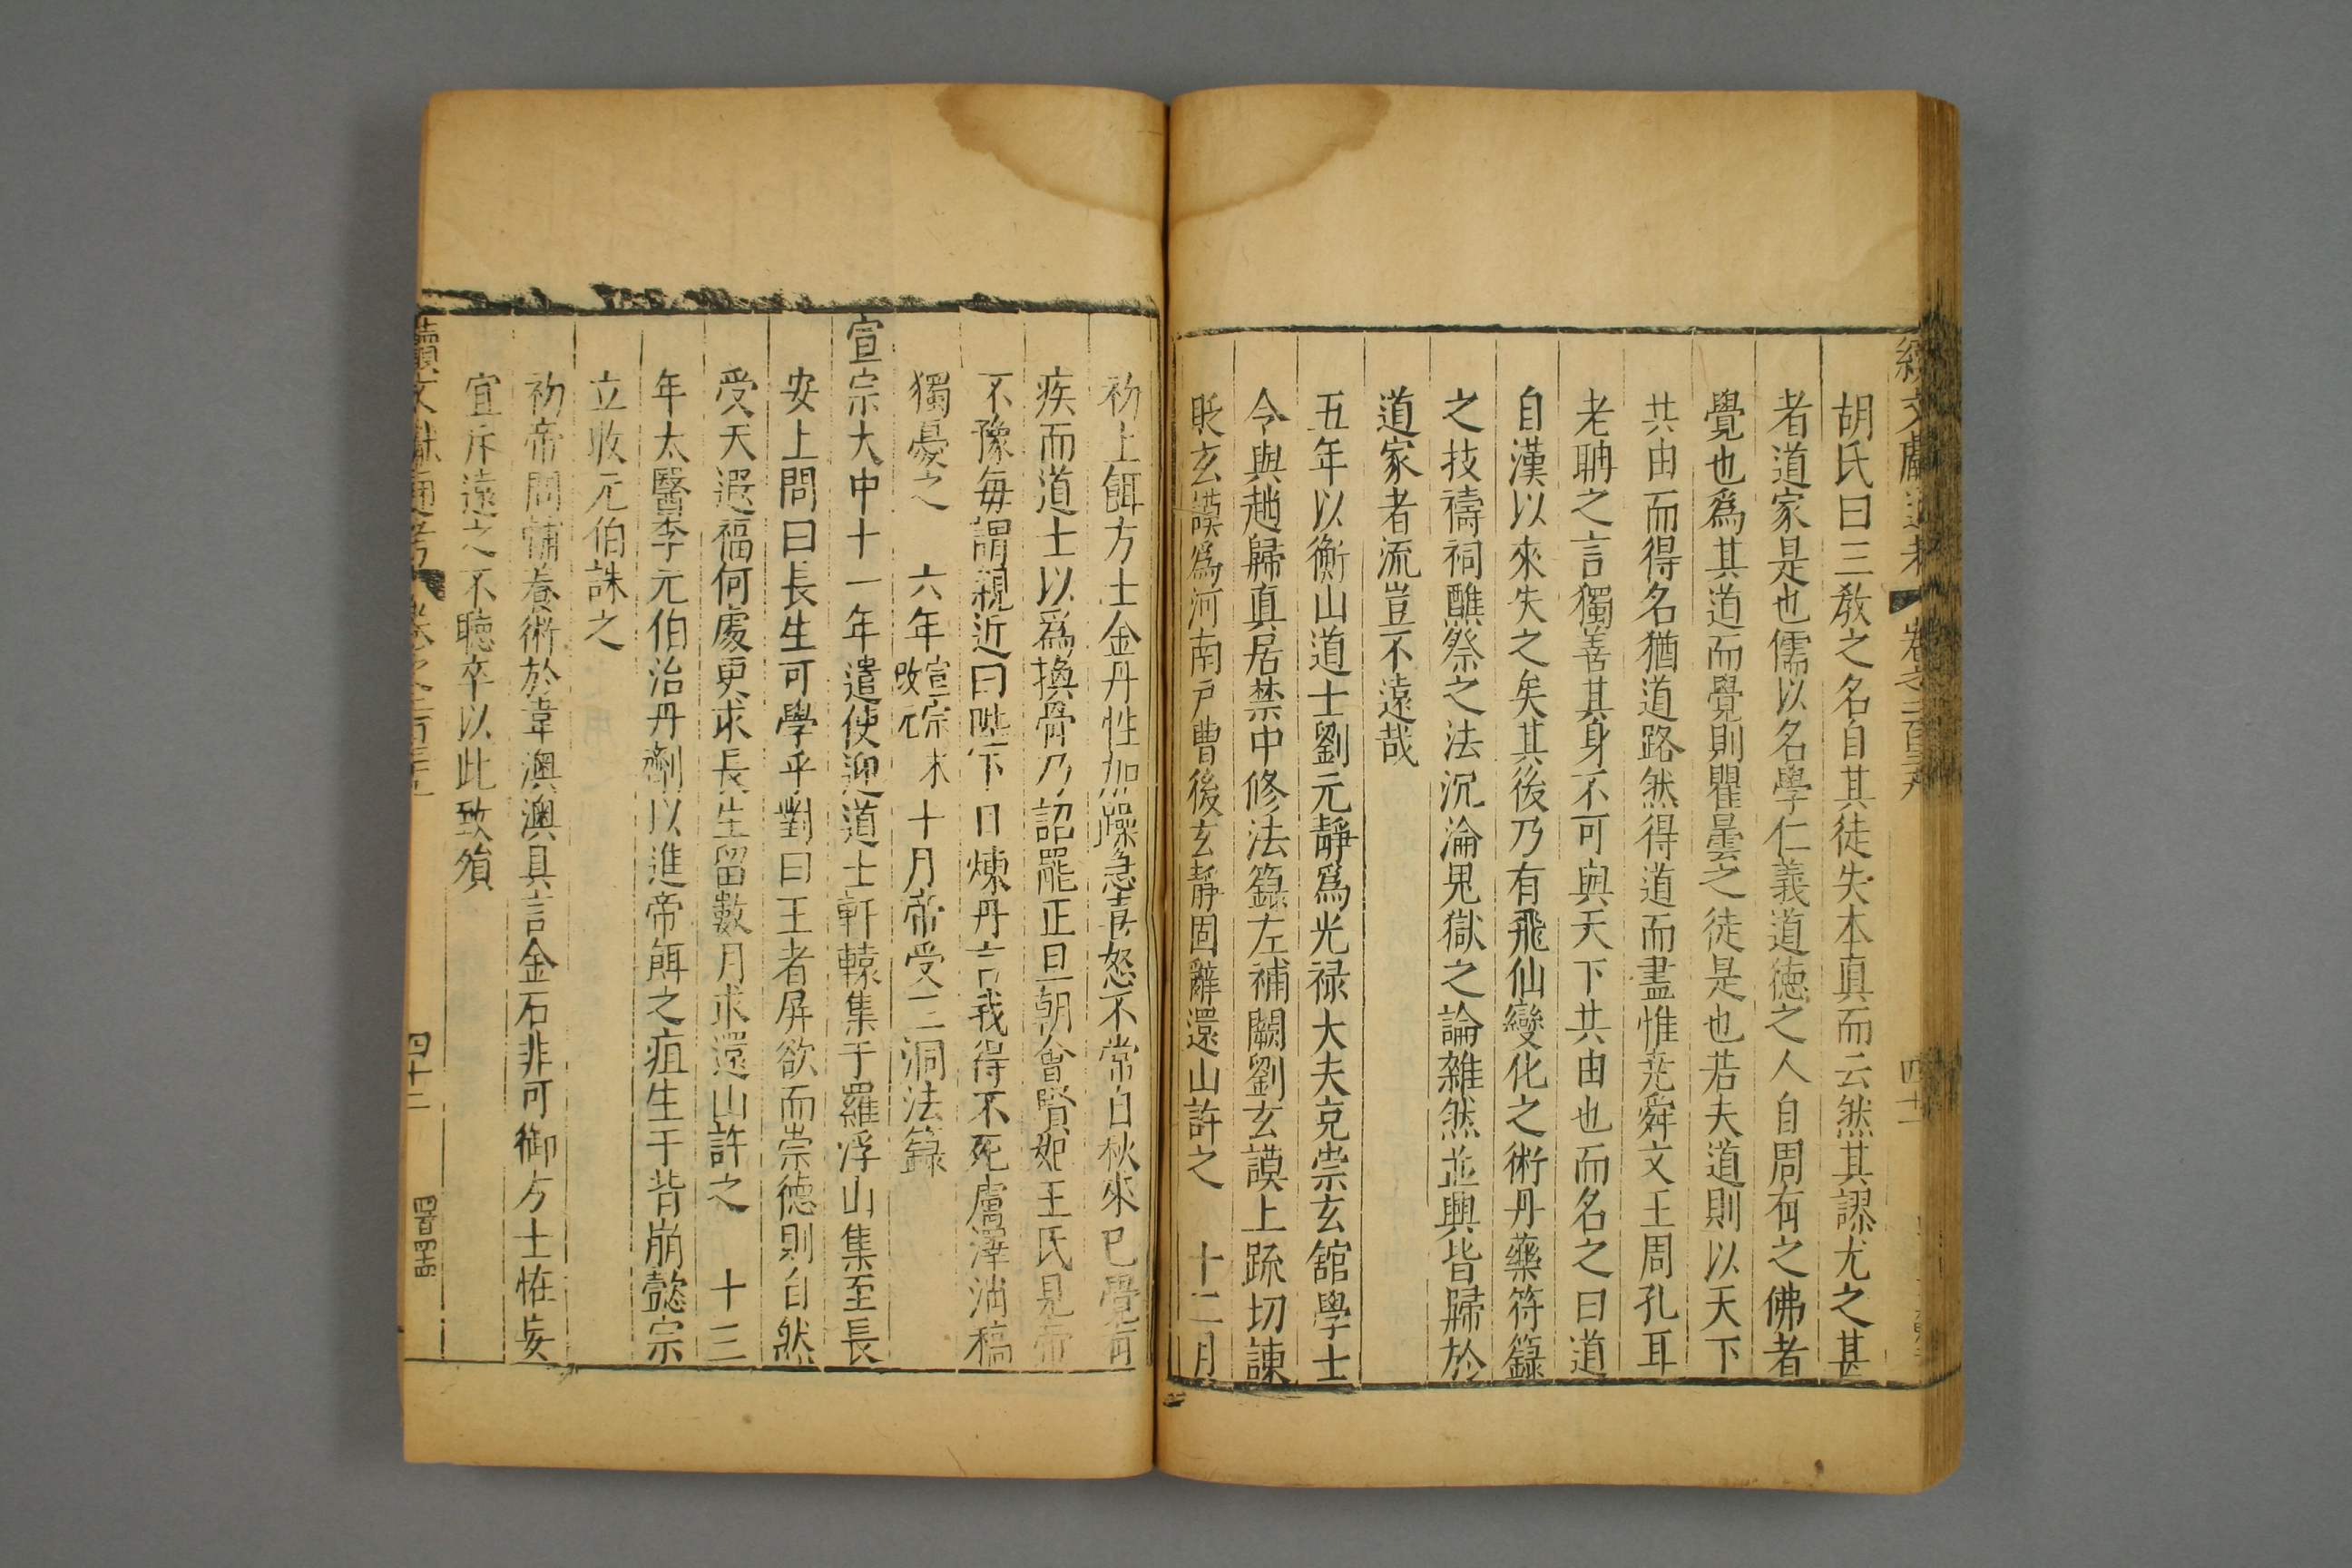 續文獻通考 卷之二百三九 四十一
胡氏曰三教之名自其徒失本真而云然其謬尤之甚
者道家是也儒以名學仁義道德之人自周有之佛者
覺也爲其道而覺則瞿曇之徒是也若夫道則以天下
共由而得名猶道路然得道而盡惟尭舜文王周孔耳
老聃之言獨善其身不可與天下共由也而名之曰道
自漢以來失之矣其後乃有飛仙變化之術丹藥符籙
之技禱祠醮祭之法沉淪鬼獄之論雜然並興皆歸於
道家者流豈不遠哉
五年以衡山道士劉元靜爲光禄大夫充崇玄舘學士
令與趙歸真居禁中修法籙左補闕劉玄謨上䟽切諫
貶玄謨爲河南戸曹後玄靜固辭還山許之 十二月
初上餌方士金丹性加躁急喜怒不常自秋來已覺有
疾而道士以爲換骨乃詔罷正旦朝會賢妃王氏見帝
不豫每謂親近曰陛下日煉丹言我得不死膚澤消槁
獨憂之 六年宣宗未改元十月帝受三洞法籙
宣宗大中十一年遣使迎道士軒轅集于羅浮山集至長
安上問曰長生可學乎對曰王者屏欲而崇德則自然
受天遐福何處更求長生留數月求還山許之 十三
年太醫李元伯治丹劑以進帝餌之疽生于背崩懿宗
立收元伯誅之
初帝問攝養術於韋澳澳具言金石非可御方士恠妄
宜斥遠之不聽卒以此致殞
續文獻通考 卷之二百 四十二